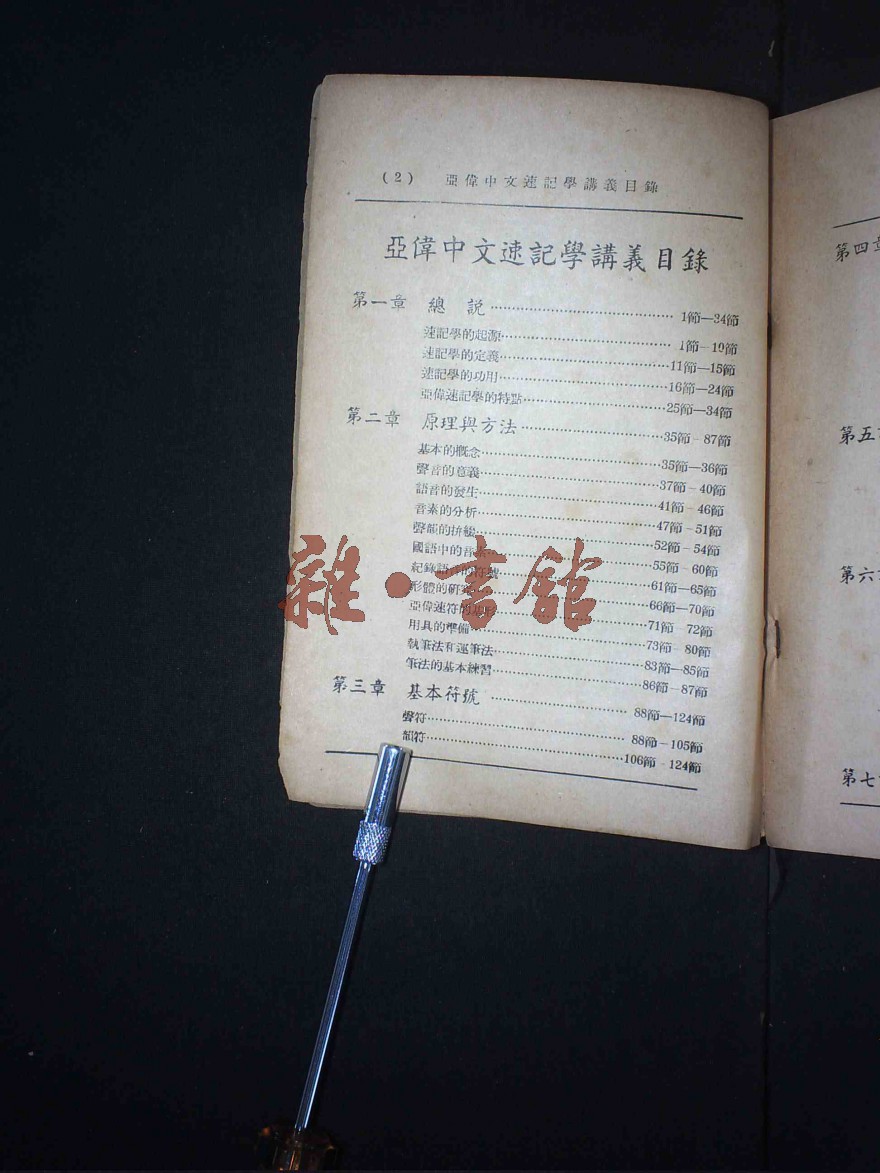 (2) 亞偉中文速記學講義目錄
亞偉中文速記學講義目錄
第一章 總說 1節—34節
速記學的起源 1節–10節
速記學的定義 11節—15節
速記學的功用 16節—24節
亞偉速記學的特點 25節—34節
第二章 原理與方法 35節–87節
基本的概念 35節—36節
聲音的意義 37節–40節
語音的發生 41節–46節
音素的分析 47節–51節
聲韻的拚綴 52節–54節
國語中的音素 55節–60節
紀錄語音的符號 61節—65節
形體的研究 66節—70節
亞偉速符的 71節 72節
用具的準備 73節–80節
執筆法和運筆法 83節—85節
筆法的基本練習 86節–87節
第三章 基本符號 88節—124節
聲符 88節–105節
韻符 106節–124節
第四章
第五
第六
第七
雜·書館